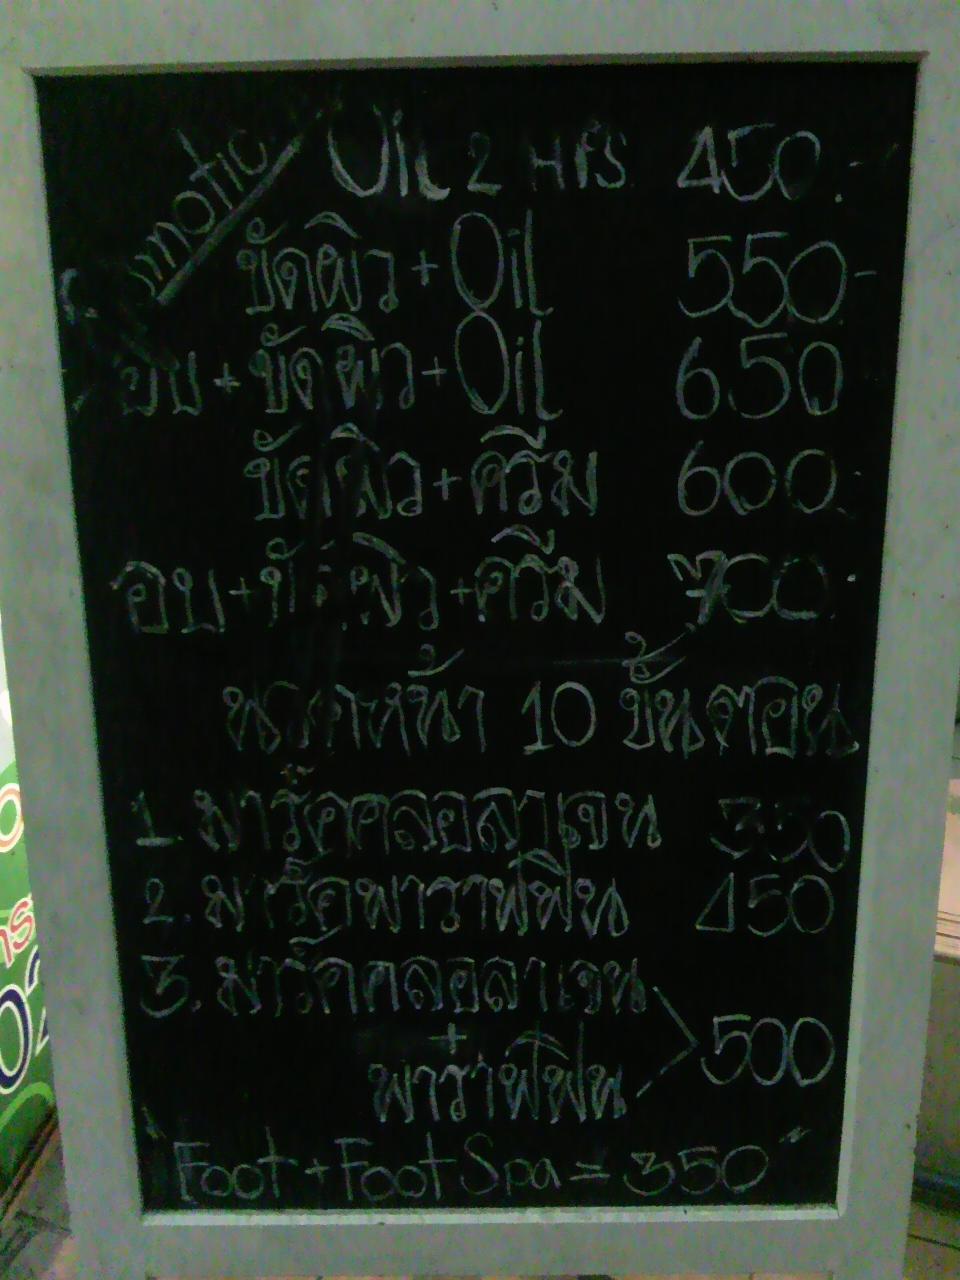 Oil 2 Hrs 450.-
ขัดผิว + Oil 550-
อบ + ขัดผิว + Oil 650
ขัดผิว + ครีม 600.-
อบ + ขัดผิว + ครีม 700.-
นวดหน้า 10 ขั้นตอน
1. มาร์คคลอลาเจน 350
2. มาร์คพาราฟฟิน 450
3. มาร์คคลอลาเจน
+
พาราฟฟิน
500
Foot + Foot Spa = 350